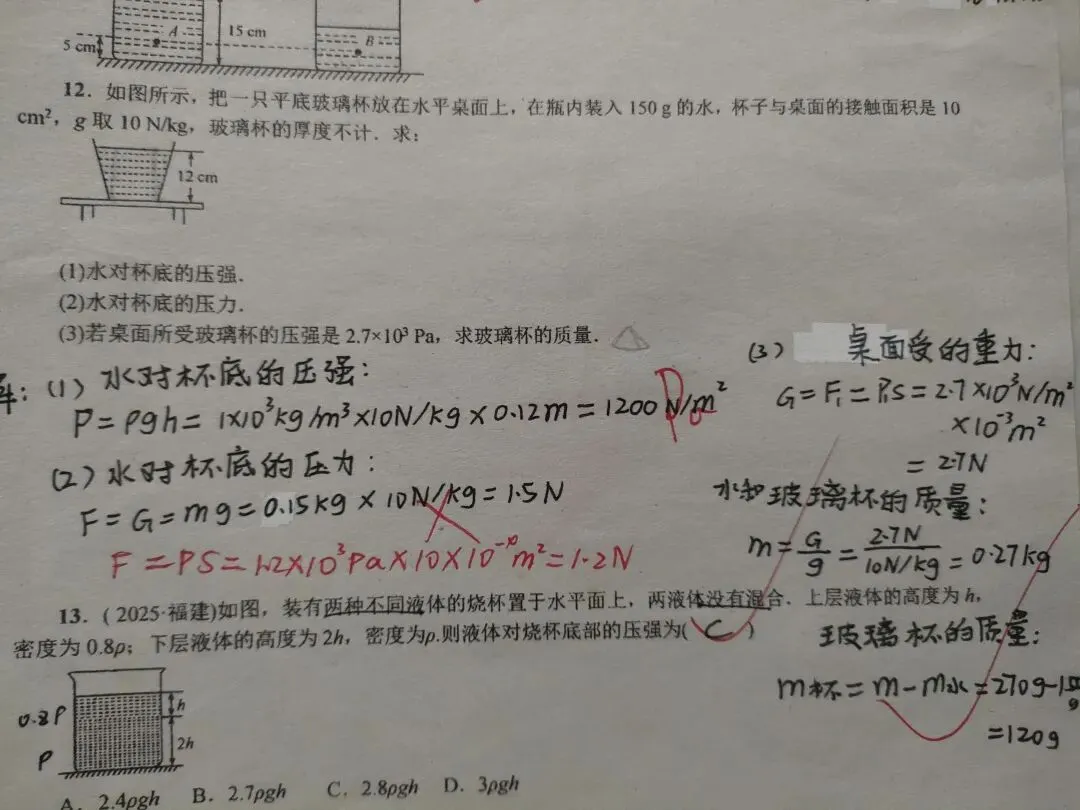 A
15 cm
5 cm
B
12．如图所示，把一只平底玻璃杯放在水平桌面上，在瓶内装入 150 g 的水，杯子与桌面的接触面积是 10
cm²，g 取 10 N/kg，玻璃杯的厚度不计．求：
12 cm
(1)水对杯底的压强．
(2)水对杯底的压力．
(3)若桌面所受玻璃杯的压强是 2.7×10³ Pa，求玻璃杯的质量．
(1) 水对杯底的压强：
P = ρgh = 1×10³kg/m³×10N/kg×0.12m = 1200 N/m²
Pa
(2) 水对杯底的压力：
F = G = mg = 0.15kg × 10N/kg = 1.5N
F = PS = 1.2×10³Pa×10×10⁻⁴m² = 1.2N
(3) 桌面受的重力：
G = F₁ = P₁S = 2.7×10³N/m²
×10⁻³m²
= 2.7N
水和玻璃杯的质量：
m = G/g = 2.7N/10N/kg = 0.27kg
玻璃杯的质量：
m杯 = m - m水 = 270g-150g
=120g
13．( 2025·福建)如图，装有两种不同液体的烧杯置于水平面上，两液体没有混合．上层液体的高度为 h，
密度为 0.8ρ；下层液体的高度为 2h，密度为ρ.则液体对烧杯底部的压强为( C )
0.8ρ
h
ρ
2h
A．2.4ρgh B．2.7ρgh C．2.8ρgh D．3ρgh